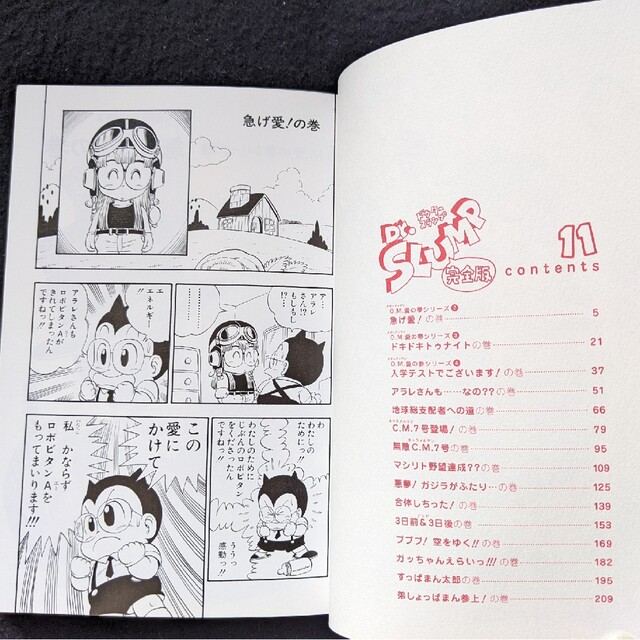 急げ愛!の巻
ア…
アラレ
さん!?
もしもし
!?…
エネルギー
………
アラレさんも
ロボビタンAが
きれてしまったん
ですねっ!!
わ…
わたしの
ために…っ!!
わたしのために
じぶんのロボビタン
をくださったん
ですねっ!!
ううっ
感動っ!!
この
愛に
かけて
私 かならず
ロボビタンAを
もってまいります!!!
ドクタースランプ
Dr.
SLUMP
完全版
11
contents
O.M.愛の季シリーズ②
急げ愛!の巻 5
ドキドキトゥナイトの巻 21
入学テストでございます!の巻 37
アラレさんも……なの??の巻 51
地球総支配者への道の巻 66
キャラメルマン
C.M.7号登場!の巻 79
無敵C.M.7号の巻 95
マシリト野望達成??の巻 109
悪夢!ガジラがふたり…の巻 125
合体しちった!の巻 139
3日前&3日後の巻 153
プププ!空をゆく!!の巻 169
ガッちゃんえらいっ!!!の巻 182
すっぱまん太郎の巻 195
弟しょっぱまん参上!の巻 209